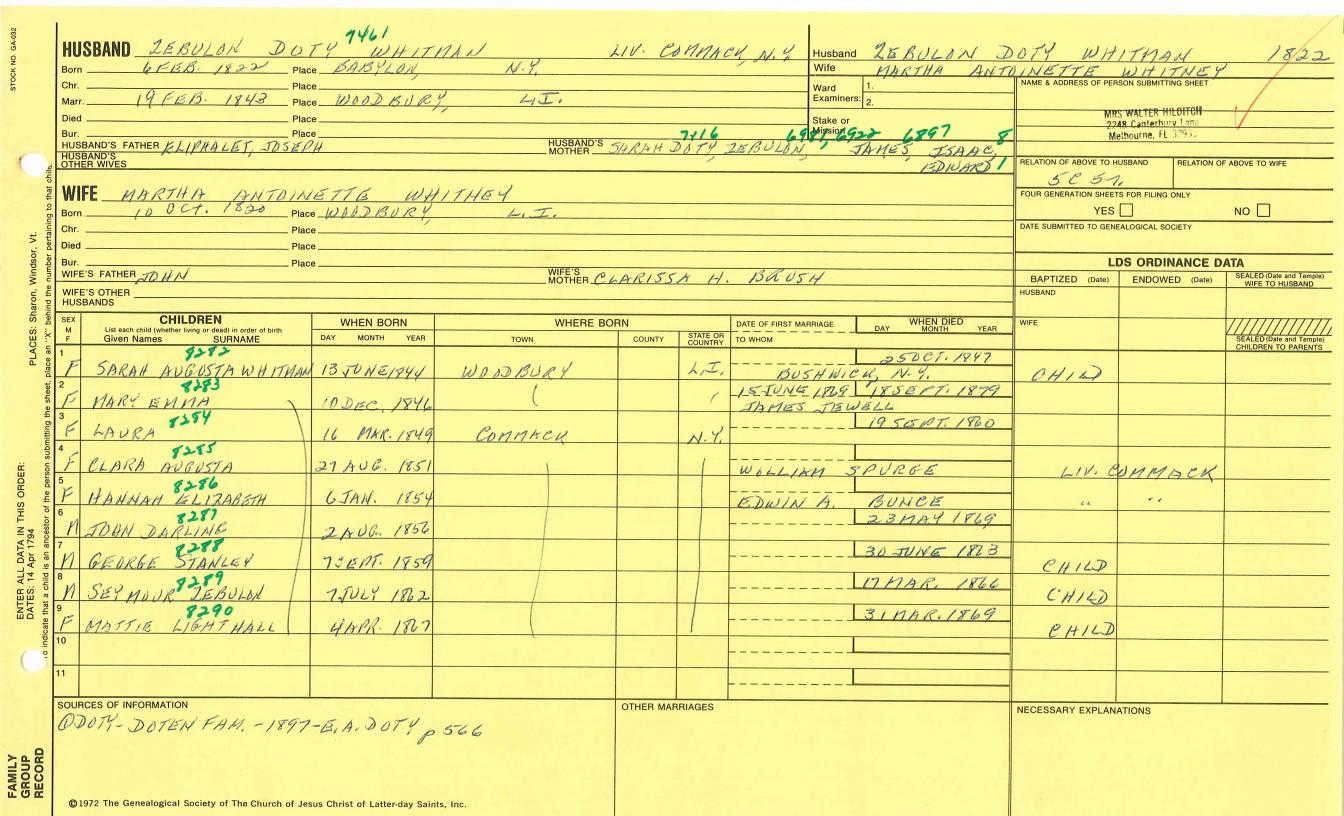 STOCK NO. GA-032
7461
HUSBAND ZEBULON DOTY WHITMAN LIV. COMMACK, N.Y.
Born 6 FEB. 1822 Place BABYLON, N.Y.
Chr. Place
Marr. 19 FEB. 1843 Place WOODBURY, L.I.
Died Place
Bur. Place
7416 6981, 6922 6897 8
HUSBAND'S FATHER ELIPHALET, JOSEPH HUSBAND'S MOTHER SARAH DOTY, ZEBULON, JAMES, ISAAC,
HUSBAND'S OTHER WIVES EDWARD 1
Husband ZEBULON DOTY WHITMAN 1822
Wife MARTHA ANTOINETTE WHITNEY
Ward 1.
Examiners: 2.
Stake or
Mission
NAME & ADDRESS OF PERSON SUBMITTING SHEET
MRS WALTER HILDITCH
2248 Canterbury Lane
Melbourne, FL
RELATION OF ABOVE TO HUSBAND RELATION OF ABOVE TO WIFE
5C 5r.
FOUR GENERATION SHEETS FOR FILING ONLY
YES NO
DATE SUBMITTED TO GENEALOGICAL SOCIETY
WIFE MARTHA ANTOINETTE WHITNEY
Born 10 OCT. 1820 Place WOODBURY, L.I.
Chr. Place
Died Place
Bur. Place
WIFE'S FATHER JOHN WIFE'S MOTHER CLARISSA H. BRUSH
WIFE'S OTHER HUSBANDS
LDS ORDINANCE DATA
BAPTIZED (Date) ENDOWED (Date) SEALED (Date and Temple) WIFE TO HUSBAND
HUSBAND
WIFE
SEALED (Date and Temple) CHILDREN TO PARENTS
SEX M F CHILDREN WHEN BORN WHERE BORN DATE OF FIRST MARRIAGE WHEN DIED
List each child (whether living or dead) in order of birth
Given Names SURNAME DAY MONTH YEAR TOWN COUNTY STATE OR COUNTRY TO WHOM DAY MONTH YEAR
8282 25 OCT. 1847
1 F SARAH AUGUSTA WHITMAN 13 JUNE 1844 WOODBURY L.I. BUSHWICK, N.Y. CHILD
8283 15 JUNE 1869 18 SEPT. 1879
2 F MARY EMMA 10 DEC. 1846 JAMES JEWELL
8284 19 SEPT. 1860
3 F LAURA 16 MAR. 1849 COMMACK N.Y.
8285
4 F CLARA AUGUSTA 27 AUG. 1851 WILLIAM SPURGE LIV. COMMACK
8286
5 F HANNAH ELIZABETH 6 JAN. 1854 EDWIN A. BUNCE " "
8287 23 MAY 1869
6 M JOHN DARLING 2 AUG. 1856
8288 30 JUNE 1863
7 M GEORGE STANLEY 7 SEPT. 1859 CHILD
8289 17 MAR. 1866
8 M SEYMOUR ZEBULON 7 JULY 1862 CHILD
8290 31 MAR. 1869
9 F MATTIE LIGHTHALL 4 APR. 1867 CHILD
10
11
SOURCES OF INFORMATION
① DOTY-DOTEN FAM. -1897- E.A. DOTY p 566
OTHER MARRIAGES
NECESSARY EXPLANATIONS
©1972 The Genealogical Society of The Church of Jesus Christ of Latter-day Saints, Inc.
FAMILY GROUP RECORD
ENTER ALL DATA IN THIS ORDER:
DATES: 14 Apr 1794
PLACES: Sharon, Windsor, Vt.
To indicate that a child is an ancestor of the person submitting the sheet, place an "X" behind the number pertaining to that child.